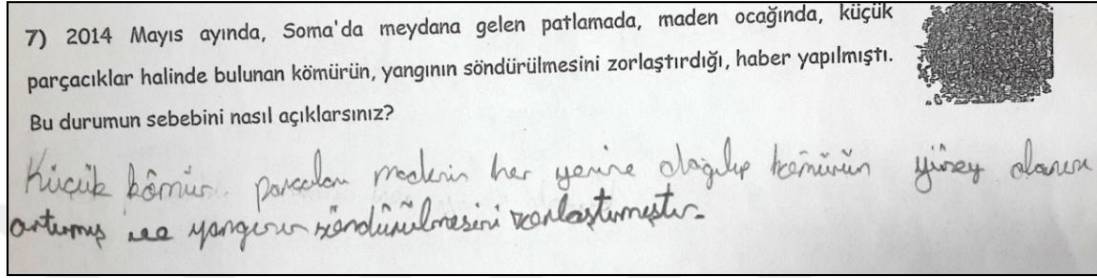 7) 2014 Mayıs ayında, Soma'da meydana gelen patlamada, maden ocağında, küçük
parçacıklar halinde bulunan kömürün, yangının söndürülmesini zorlaştırdığı, haber yapılmıştı.
Bu durumun sebebini nasıl açıklarsınız?
Küçük kömür parçaları madenin her yerine dağılıp kömürün yüzey alanını
artırmış ve yangının söndürülmesini zorlaştırmıştır.